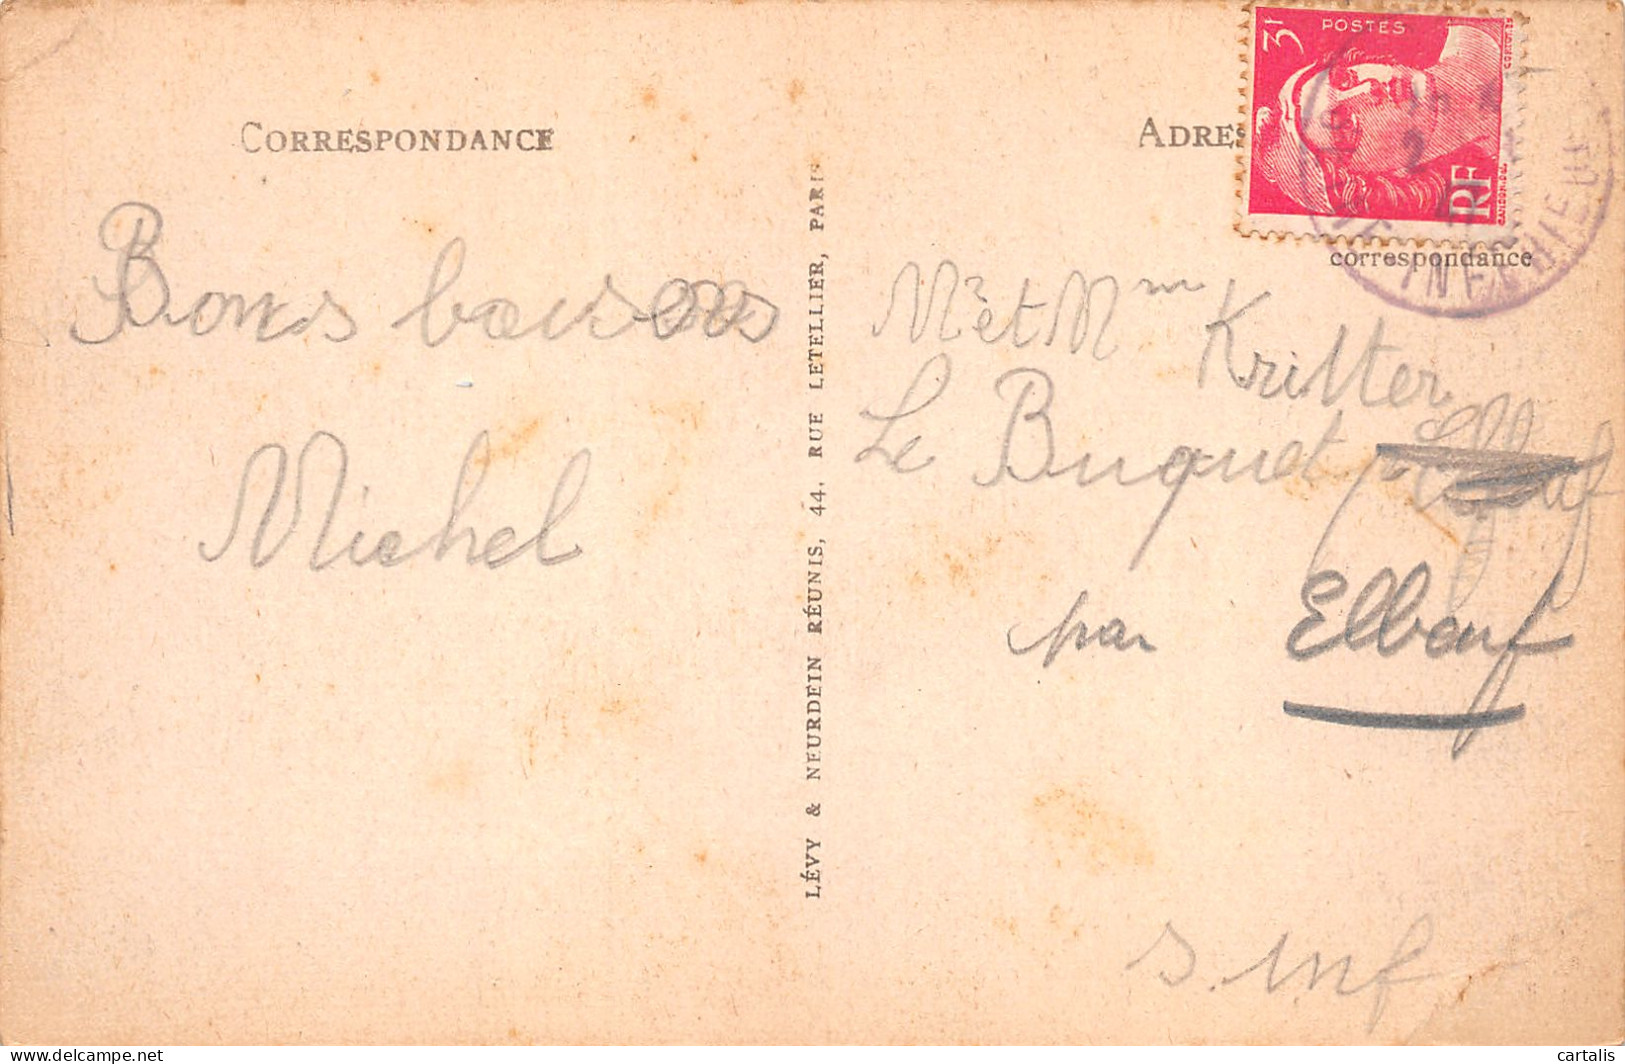 CORRESPONDANCE
Bons baisers
Michel
LÉVY & NEURDEIN RÉUNIS, 44, RUE LETELLIER, PARIS
3F
POSTES
RF
ADRES
correspondance
INFÉRIEURE
Mr et Mme
Kritter
Le Buquet
par Elbeuf
S. Inf
cartalis